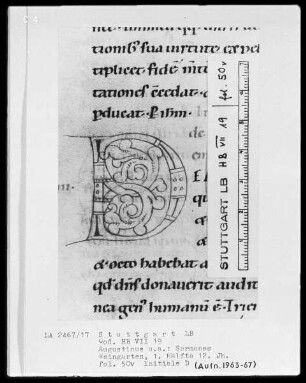 tionib; sua uirtute
tiplicet fidē
tationes
pducat. P
de octo habebat
qđ dn̄s donauerit audit
nea gen; humanū ē. Tric
STUTTGART LB HB VII 19 fol. 50v
LA 2467/17 Stuttgart LB
Cod. HB VII 19
Augustinus u.a.: Sermones
Weingarten, 1. Hälfte 12. Jh.
fol. 50v Initiale D (Aufn. 1965-67)